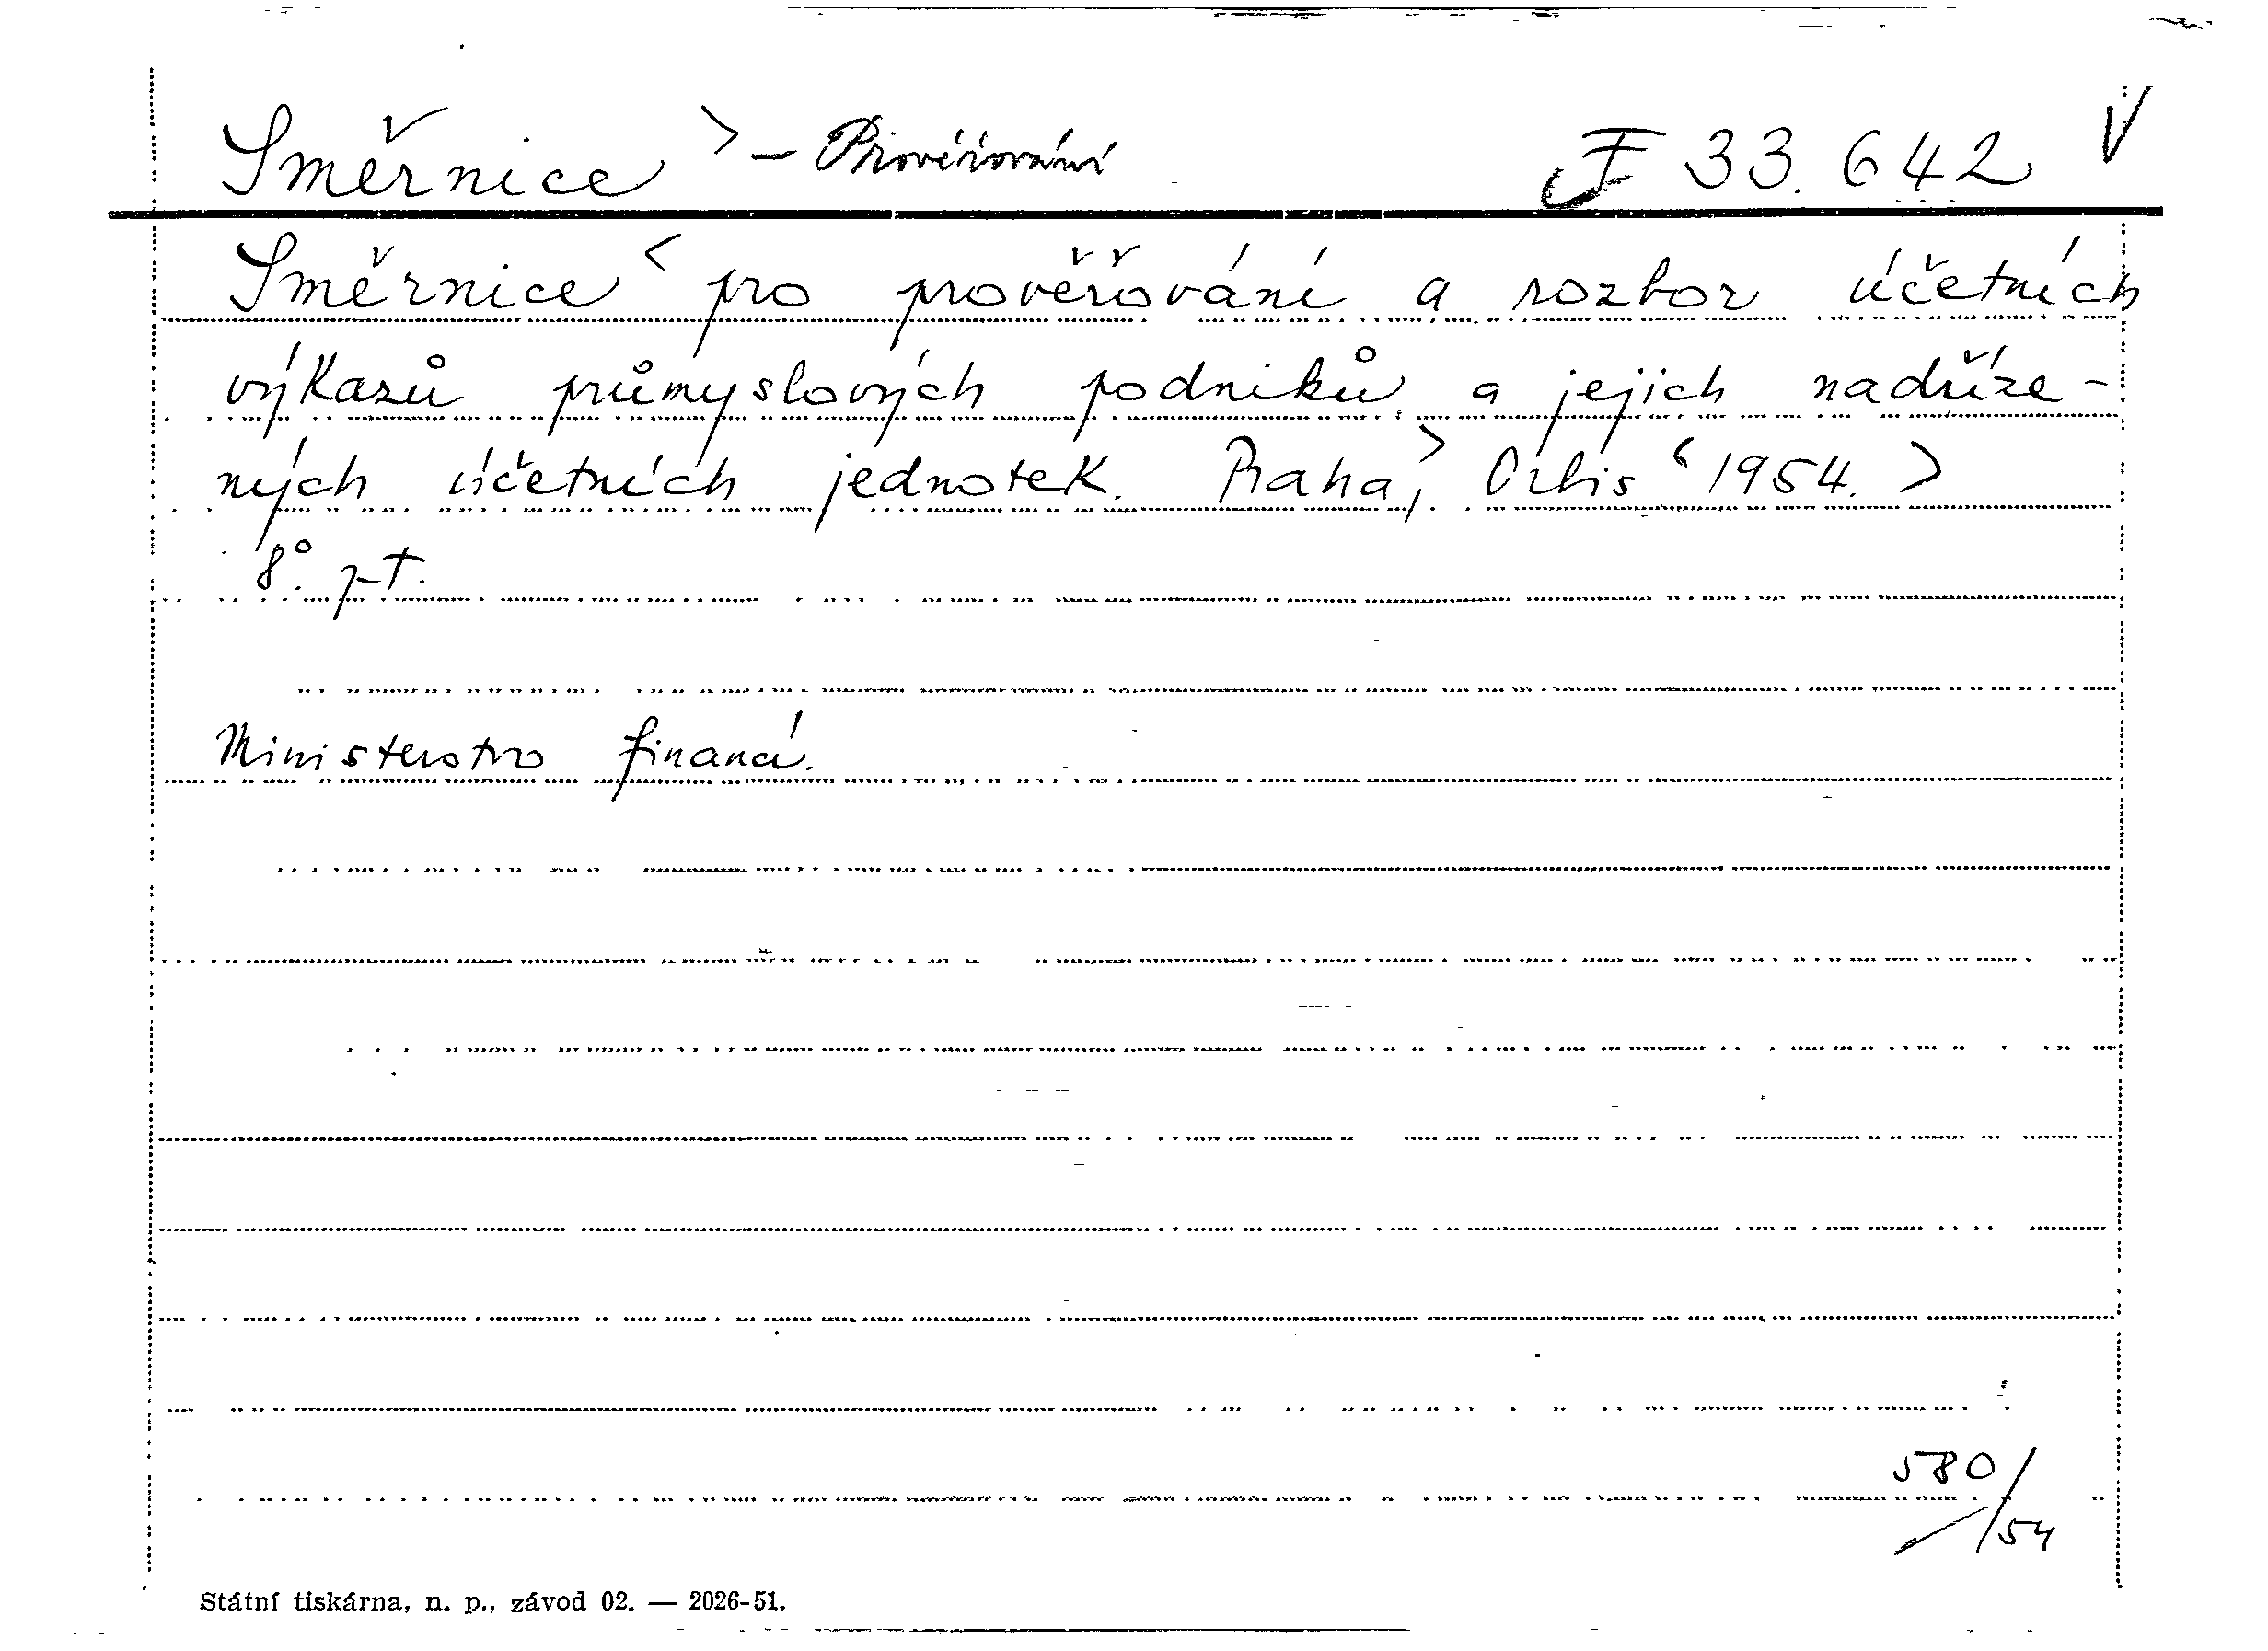 Směrnice > - Prověřování F 33.642 V
Směrnice < pro prověřování a rozbor účetních
výkazů průmyslových podniků a jejich nadříze-
ných účetních jednotek. Praha, > Orbis < 1954. >
8°. pt.
Ministerstvo financí.
580/54
Státní tiskárna, n. p., závod 02. — 2026-51.